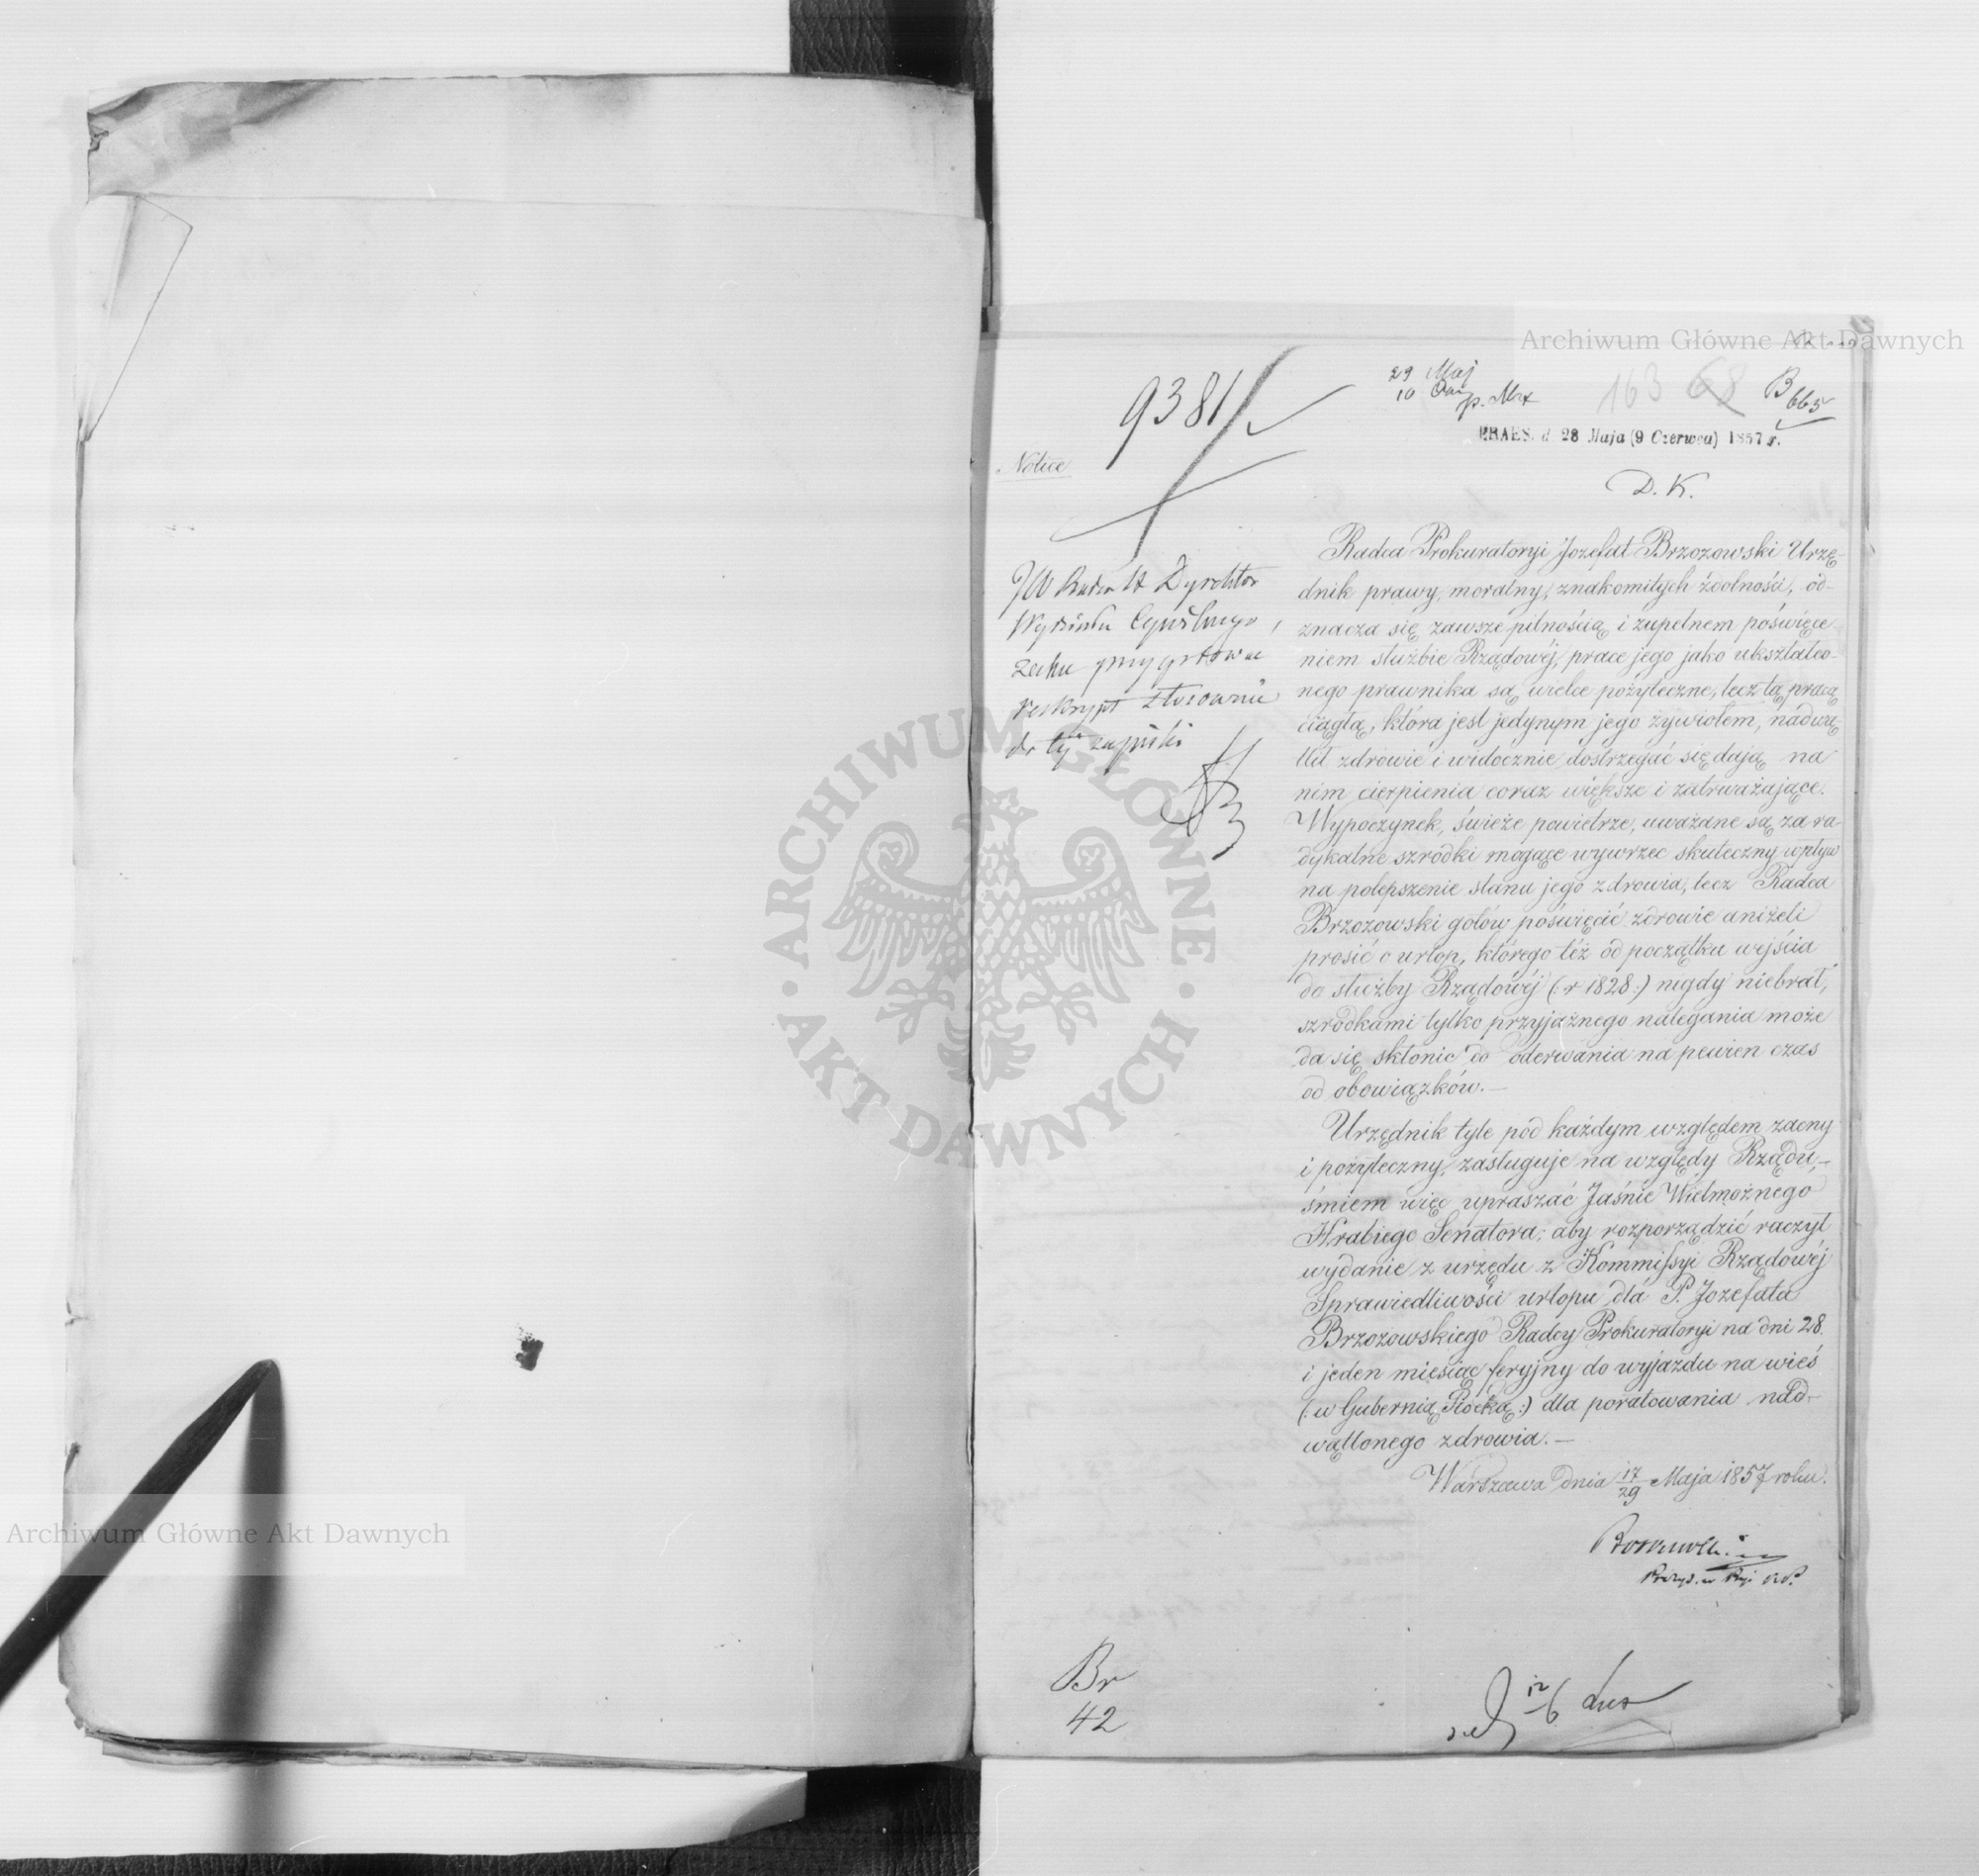 Archiwum Główne Akt Dawnych
9381
29 Maj
10
163 68
B 665
PRAES. d. 28 Maja (9 Czerwca) 1857 r.
Notice
D. K.
JW Radca St Dyrektor
Wydziału Cywilnego,
zechce przygotować
reskrypt stosownie
do téj zapiski
Radca Prokuratoryi Jozefat Brzozowski Urzę-
dnik prawy, moralny, znakomitych zdolności, od-
znacza się zawsze pilnością i zupełnem poświęce-
niem służbie Rządowéj, prace jego jako ukształco-
nego prawnika są wielce pożyteczne, lecz tą pracą
ciągłą, która jest jedynym jego żywiołem, nadwą-
tlił zdrowie i widocznie dostrzegać się dają na
nim cierpienia coraz większe i zatrważające.
Wypoczynek, świeże powietrze, uważane są za ra-
dykalne szrodki mogące wywrzec skuteczny wpływ
na polepszenie stanu jego zdrowia, lecz Radca
Brzozowski gotów poświęcić zdrowie aniżeli
prosić o urlop, którego téż od początku wejścia
do służby Rządowéj (: r 1828 :) nigdy niebrał,
szrodkami tylko przyjaznego nalegania może
da się skłonic do oderwania na pewien czas
od obowiązków.—
Urzędnik tyle pod każdym względem zacny
i pożyteczny, zasługuje na względy Rządu,—
śmiem więc upraszać Jaśnie Wielmożnego
Hrabiego Senatora, aby rozporządzić raczył
wydanie z urzędu z Kommissyi Rządowéj
Sprawiedliwości urlopu dla P. Jozefata
Brzozowskiego Radcy Prokuratoryi na dni 28
i jeden miesiąc feryjny do wyjazdu na wieś
(: w Gubernią Płocką :) dla poratowania nad-
wątlonego zdrowia.—
Warszawa dnia 17/29 Maja 1857 roku.
Br
42
12/6
ARCHIWUM GŁÓWNE AKT DAWNYCH
Archiwum Główne Akt Dawnych